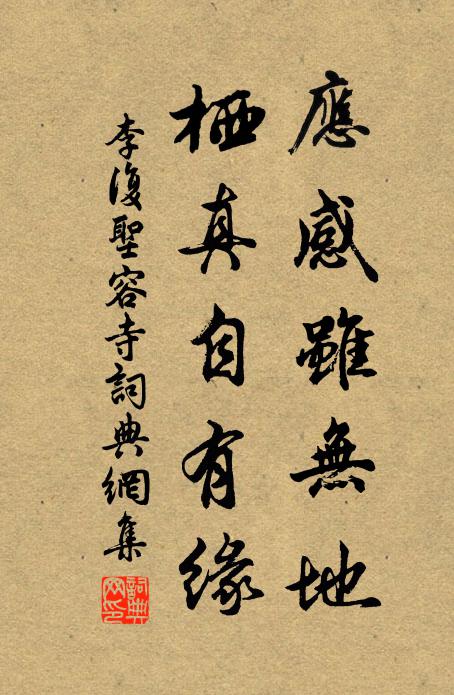 應感雖無地
栖真自有緣
李復聖容寺詞典網集
詞典网印